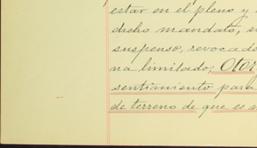 estar en el pleno y
dicho mandato, n
suspenso, revocado
na limitado; Otor
sentimiento para
de terreno de que es